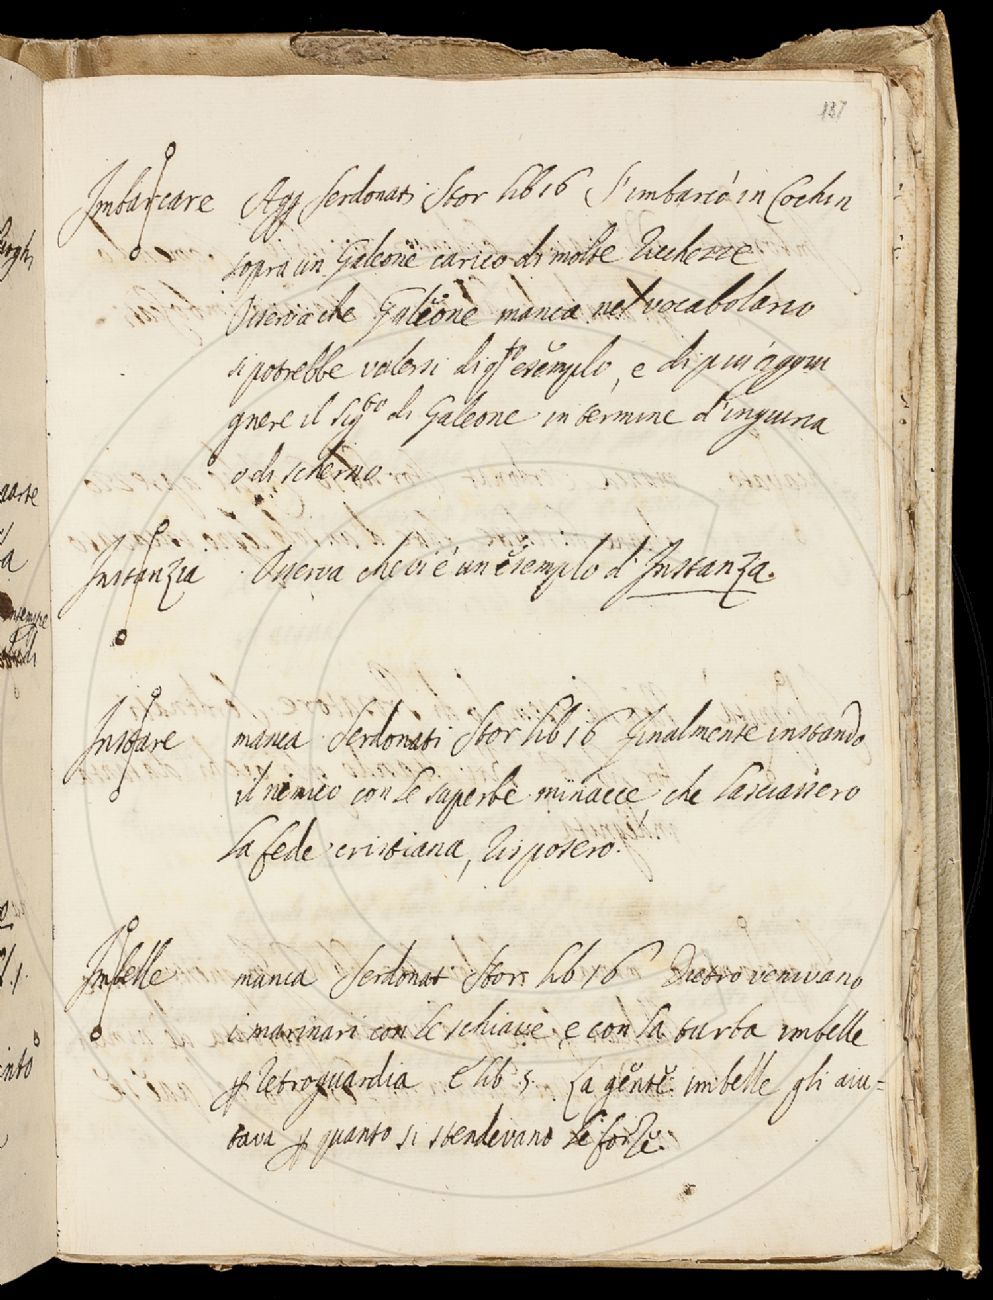 137
Imbarcare Agg Serdonati Stor lib 16 S'imbarcò in Cochin
sopra un Galeone carico di molte Ricchezze
Osserva che Galeone manca nel vocabolario
si potrebbe valersi di qto esemplo, e di più aggiu
gnere il sigto di Galeone in termine d'ingiuria
o di scherno.
Instanzia Osserva che ci è un esemplo d' Instanza.
Instare manca Serdonati Stor lib 16 Finalmente instando
il nimico con le superbe minacce che lasciassero
la fede cristiana, Risposero.
Imbelle manca Serdonati Stor lib 16 Dietro venivano
i marinari con le schiave e con la turba imbelle
p Retroguardia E lib 5. La gente imbelle gli aiu=
tava p quanto si stendevano le forze.